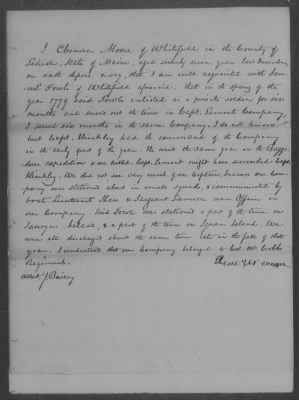 I Ebenezer Moore of Whitefield in the County of
Lincoln, State of Maine, aged seventy seven years last November,
on oath depose & say, that I am well acquainted with Sam-
uel Fowle of Whitefield aforesaid, that in the spring of the
year 1779 said Fowle enlisted as a private soldier for six
months and served out the time in Capt. Lemonts Company,
I served six months in the same Company, I do not know
but Capt. Hinkley had the command of the Company
in the early part of the year. He went the same year on the Bagga-
duce expedition & was killed. Capt. Lemont might have succeeded Capt.
Hinkley. We did not see very much of our Captain, because our Com-
pany was stationed about in small squads, & communicated by
boats. Lieutenant Shaw & Sargeant Lamson were Officers in
our Company. Said Fowle was stationed a part of the time on
Sawyers Island, & a part of the time on Squam Island. We
were all discharged about the same time late in the fall of that
year. I understood that our Company belonged to Col. Mc Cobbs
Regiment.
attest. J. Bailey